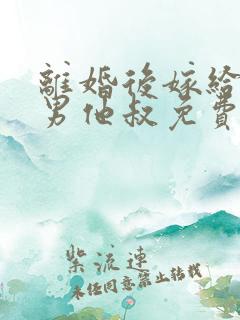 離婚後嫁給
男他叔免費
紫流連
未经同意禁止转载